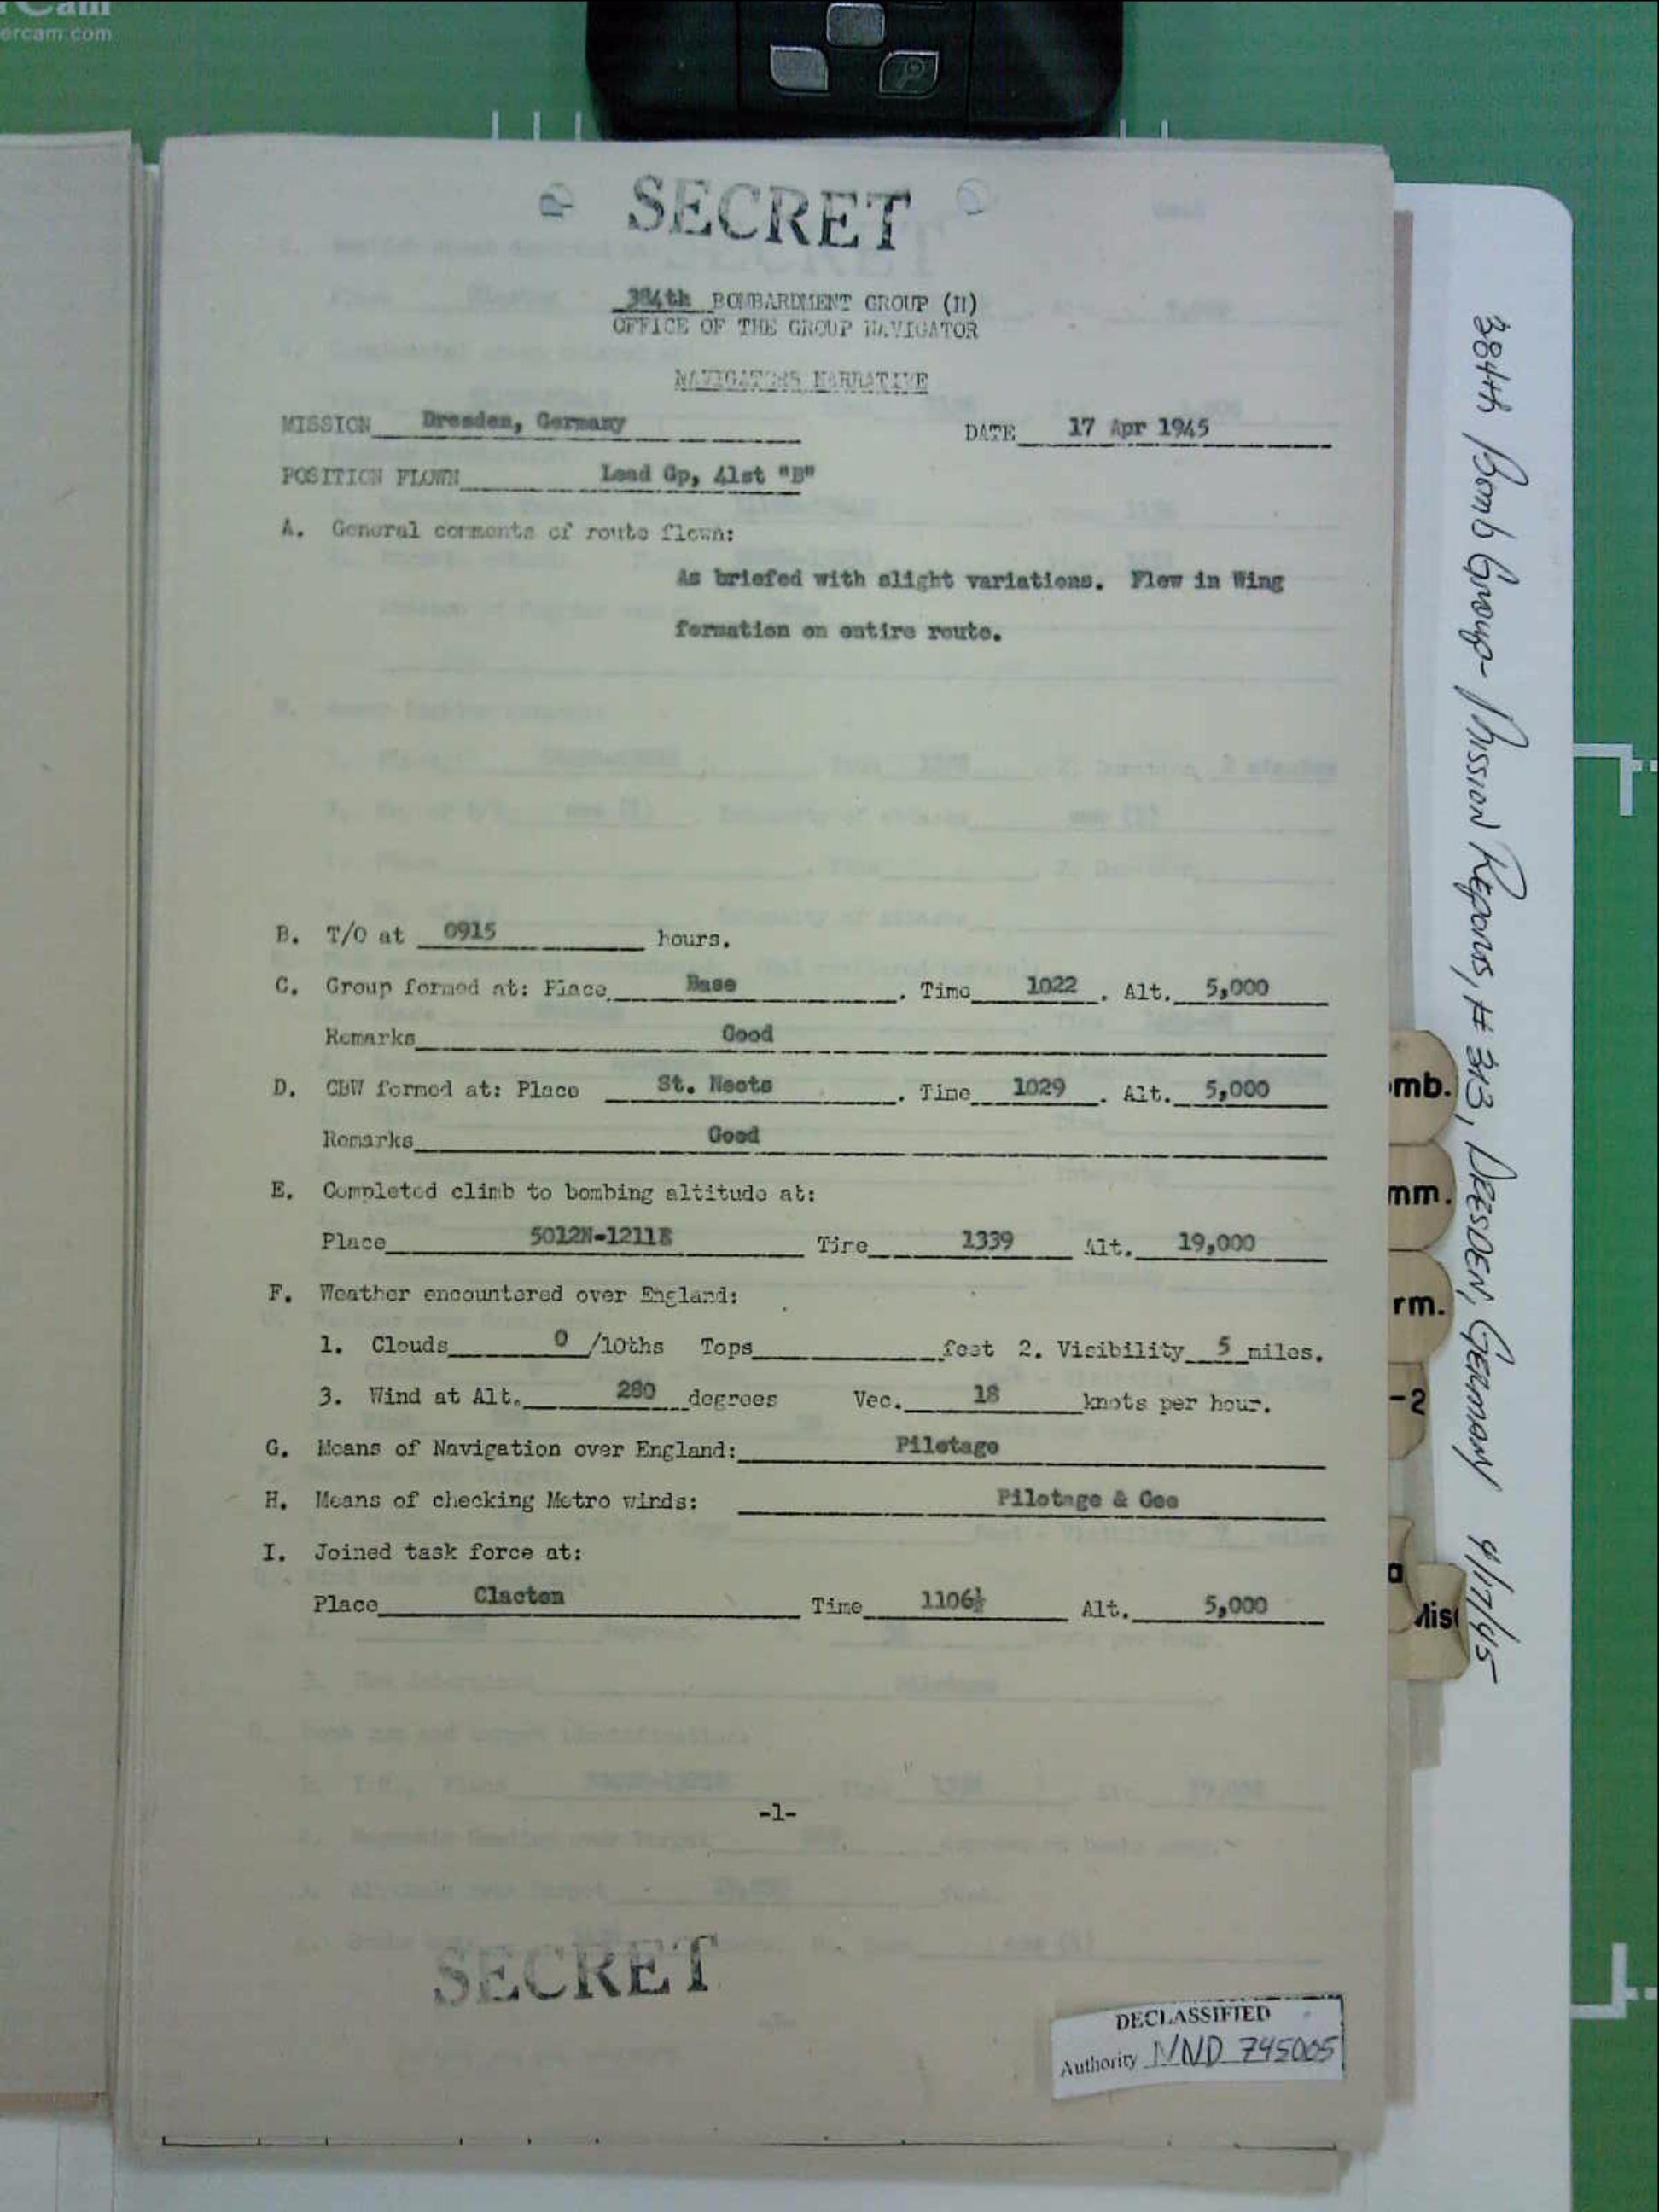 ercam.com
SECRET
384th BOMBARDMENT GROUP (H)
OFFICE OF THE GROUP NAVIGATOR
NAVIGATORS NARRATIVE
MISSION Dresden, Germany DATE 17 Apr 1945
POSITION FLOWN Lead Gp, 41st "B"
A. General comments of route flown:
As briefed with slight variations. Flew in Wing
formation on entire route.
B. T/O at 0915 hours.
C. Group formed at: Place Base . Time 1022 . Alt. 5,000
Remarks Good
D. CBW formed at: Place St. Neots . Time 1029 . Alt. 5,000
Remarks Good
E. Completed climb to bombing altitude at:
Place 5012N-1211E Time 1339 Alt. 19,000
F. Weather encountered over England:
1. Clouds 0 /10ths Tops feet 2. Visibility 5 miles.
3. Wind at Alt. 280 degrees Vec. 18 knots per hour.
G. Means of Navigation over England: Pilotage
H. Means of checking Metro winds: Pilotage & Gee
I. Joined task force at:
Place Clacton Time 1106½ Alt. 5,000
-1-
SECRET
DECLASSIFIED
Authority NND 745005
384th Bomb Group - Mission Reports, # 313, DRESDEN, GERMANY 4/17/45
omb.
mm.
rm.
-2
a
Misc